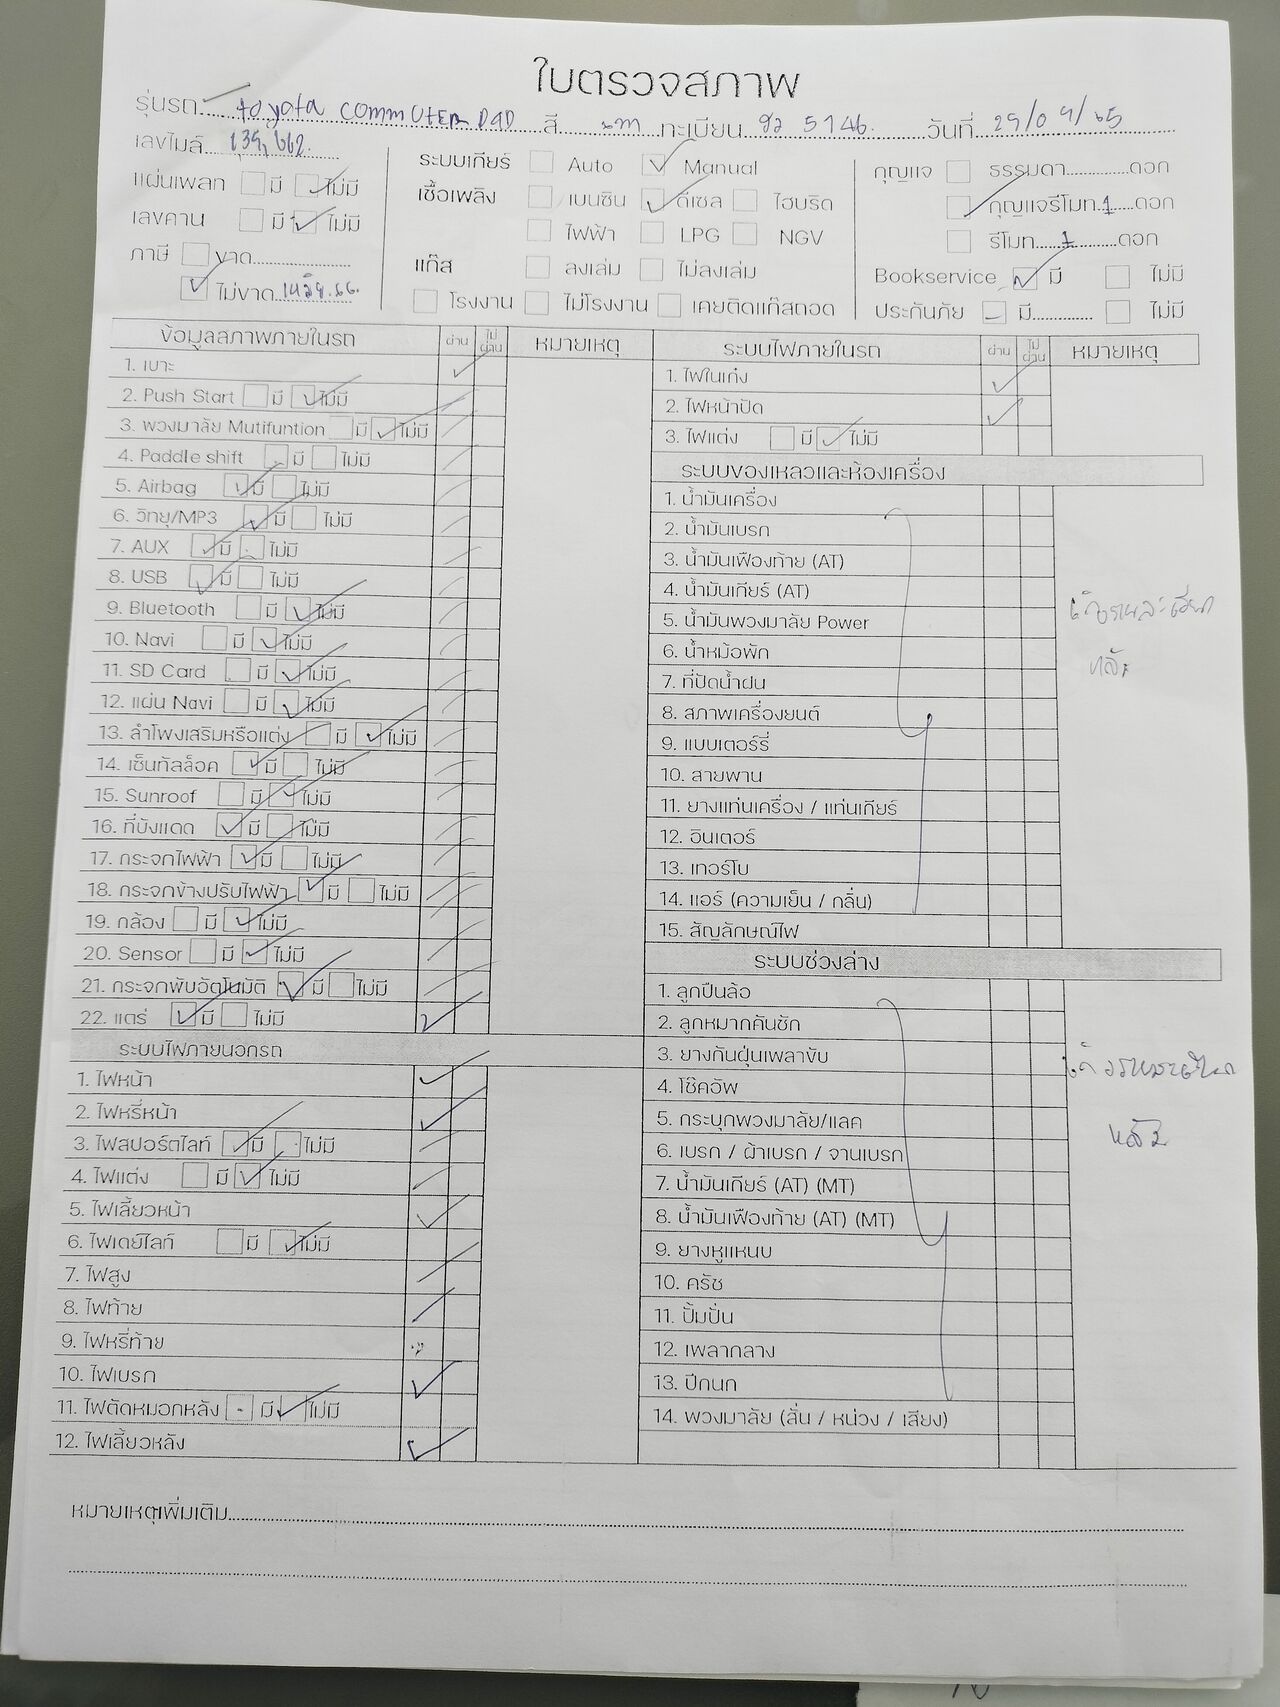 ใบตรวจสภาพ
รุ่นรถ toyota COMMUTER D4D สี เทา ทะเบียน 5746 วันที่ 29/09/65
เลขไมล์ 139,662.
ระบบเกียร์ Auto Manual
กุญแจ ธรรมดา ดอก
แผ่นเพลท มี ไม่มี
เชื้อเพลิง เบนซิน ดีเซล ไฮบริด
กุญแจรีโมท 1 ดอก
เลขคาน มี ไม่มี
ไฟฟ้า LPG NGV
รีโมท 1 ดอก
ภาษี ขาด
แก๊ส ลงเล่ม ไม่ลงเล่ม
Bookservice มี ไม่มี
ไม่ขาด
โรงงาน ไม่โรงงาน เคยติดแก๊สถอด
ประกันภัย มี ไม่มี
ข้อมูลสภาพภายในรถ ผ่าน ไม่ผ่าน หมายเหตุ
1. เบาะ
2. Push Start มี ไม่มี
3. พวงมาลัย Mutifuntion มี ไม่มี
4. Paddle shift มี ไม่มี
5. Airbag มี ไม่มี
6. วิทยุ/MP3 มี ไม่มี
7. AUX มี ไม่มี
8. USB มี ไม่มี
9. Bluetooth มี ไม่มี
10. Navi มี ไม่มี
11. SD Card มี ไม่มี
12. แผ่น Navi มี ไม่มี
13. ลำโพงเสริมหรือแต่ง มี ไม่มี
14. เซ็นทัลล็อค มี ไม่มี
15. Sunroof มี ไม่มี
16. ที่บังแดด มี ไม่มี
17. กระจกไฟฟ้า มี ไม่มี
18. กระจกข้างปรับไฟฟ้า มี ไม่มี
19. กล้อง มี ไม่มี
20. Sensor มี ไม่มี
21. กระจกพับอัตโนมัติ มี ไม่มี
22. แตร่ มี ไม่มี
ระบบไฟภายนอกรถ
1. ไฟหน้า
2. ไฟหรี่หน้า
3. ไฟสปอร์ตไลท์ มี ไม่มี
4. ไฟแต่ง มี ไม่มี
5. ไฟเลี้ยวหน้า
6. ไฟเดย์ไลท์ มี ไม่มี
7. ไฟสูง
8. ไฟท้าย
9. ไฟหรี่ท้าย
10. ไฟเบรก
11. ไฟตัดหมอกหลัง มี ไม่มี
12. ไฟเลี้ยวหลัง
ระบบไฟภายในรถ ผ่าน ไม่ผ่าน หมายเหตุ
1. ไฟในเก๋ง
2. ไฟหน้าปัด
3. ไฟแต่ง มี ไม่มี
ระบบของเหลวและห้องเครื่อง
1. น้ำมันเครื่อง
2. น้ำมันเบรก
3. น้ำมันเฟืองท้าย (AT)
4. น้ำมันเกียร์ (AT)
5. น้ำมันพวงมาลัย Power
6. น้ำหม้อพัก
7. ที่ปัดน้ำฝน
8. สภาพเครื่องยนต์
9. แบบเตอร์รี่
10. สายพาน
11. ยางแท่นเครื่อง / แท่นเกียร์
12. อินเตอร์
13. เทอร์โบ
14. แอร์ (ความเย็น / กลิ่น)
15. สัญลักษณ์ไฟ
ระบบช่วงล่าง
1. ลูกปืนล้อ
2. ลูกหมากคันชัก
3. ยางกันฝุ่นเพลาขับ
4. โช๊คอัพ
5. กระบุกพวงมาลัย/แลค
6. เบรก / ผ้าเบรก / จานเบรก
7. น้ำมันเกียร์ (AT) (MT)
8. น้ำมันเฟืองท้าย (AT) (MT)
9. ยางหูแหนบ
10. ครัช
11. ปั้มปั่น
12. เพลากลาง
13. ปีกนก
14. พวงมาลัย (สั่น / หน่วง / เสียง)
หมายเหตุเพิ่มเติม